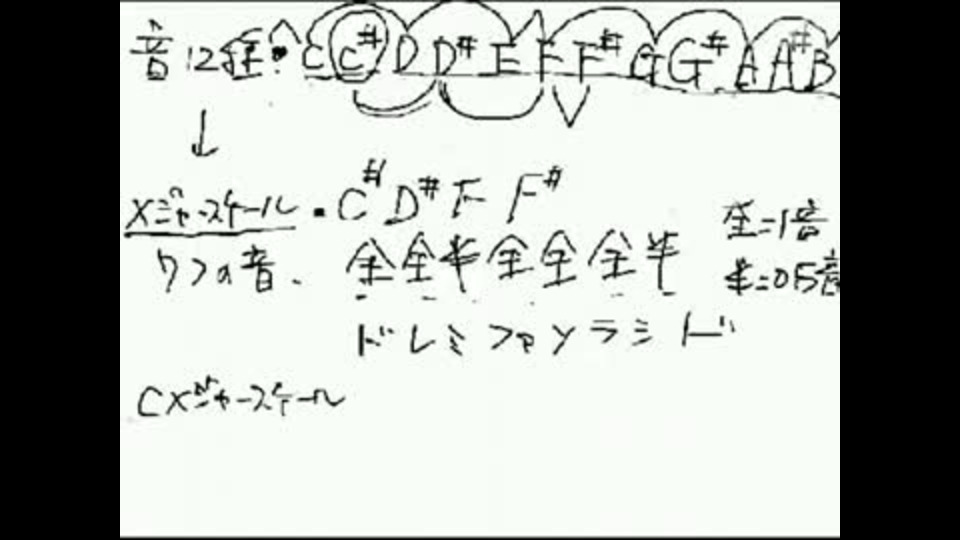 音12種: C C# D D# E F F# G G# A A# B
メジャースケール・C# D# F F#
7つの音、 全全半全全全半
全=1音
半=0.5音
ドレミファソラシド
Cメジャースケール